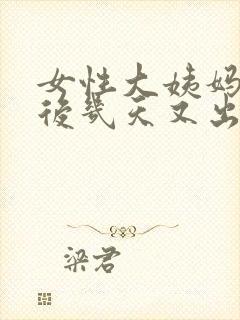 女性大姨妈
後几天又出
梁君